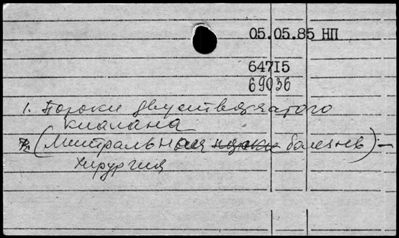 05.05.85 НП
64715
69036
1. Пороки двустворчатого
клапана
(Митральная болезнь) –
хирургия